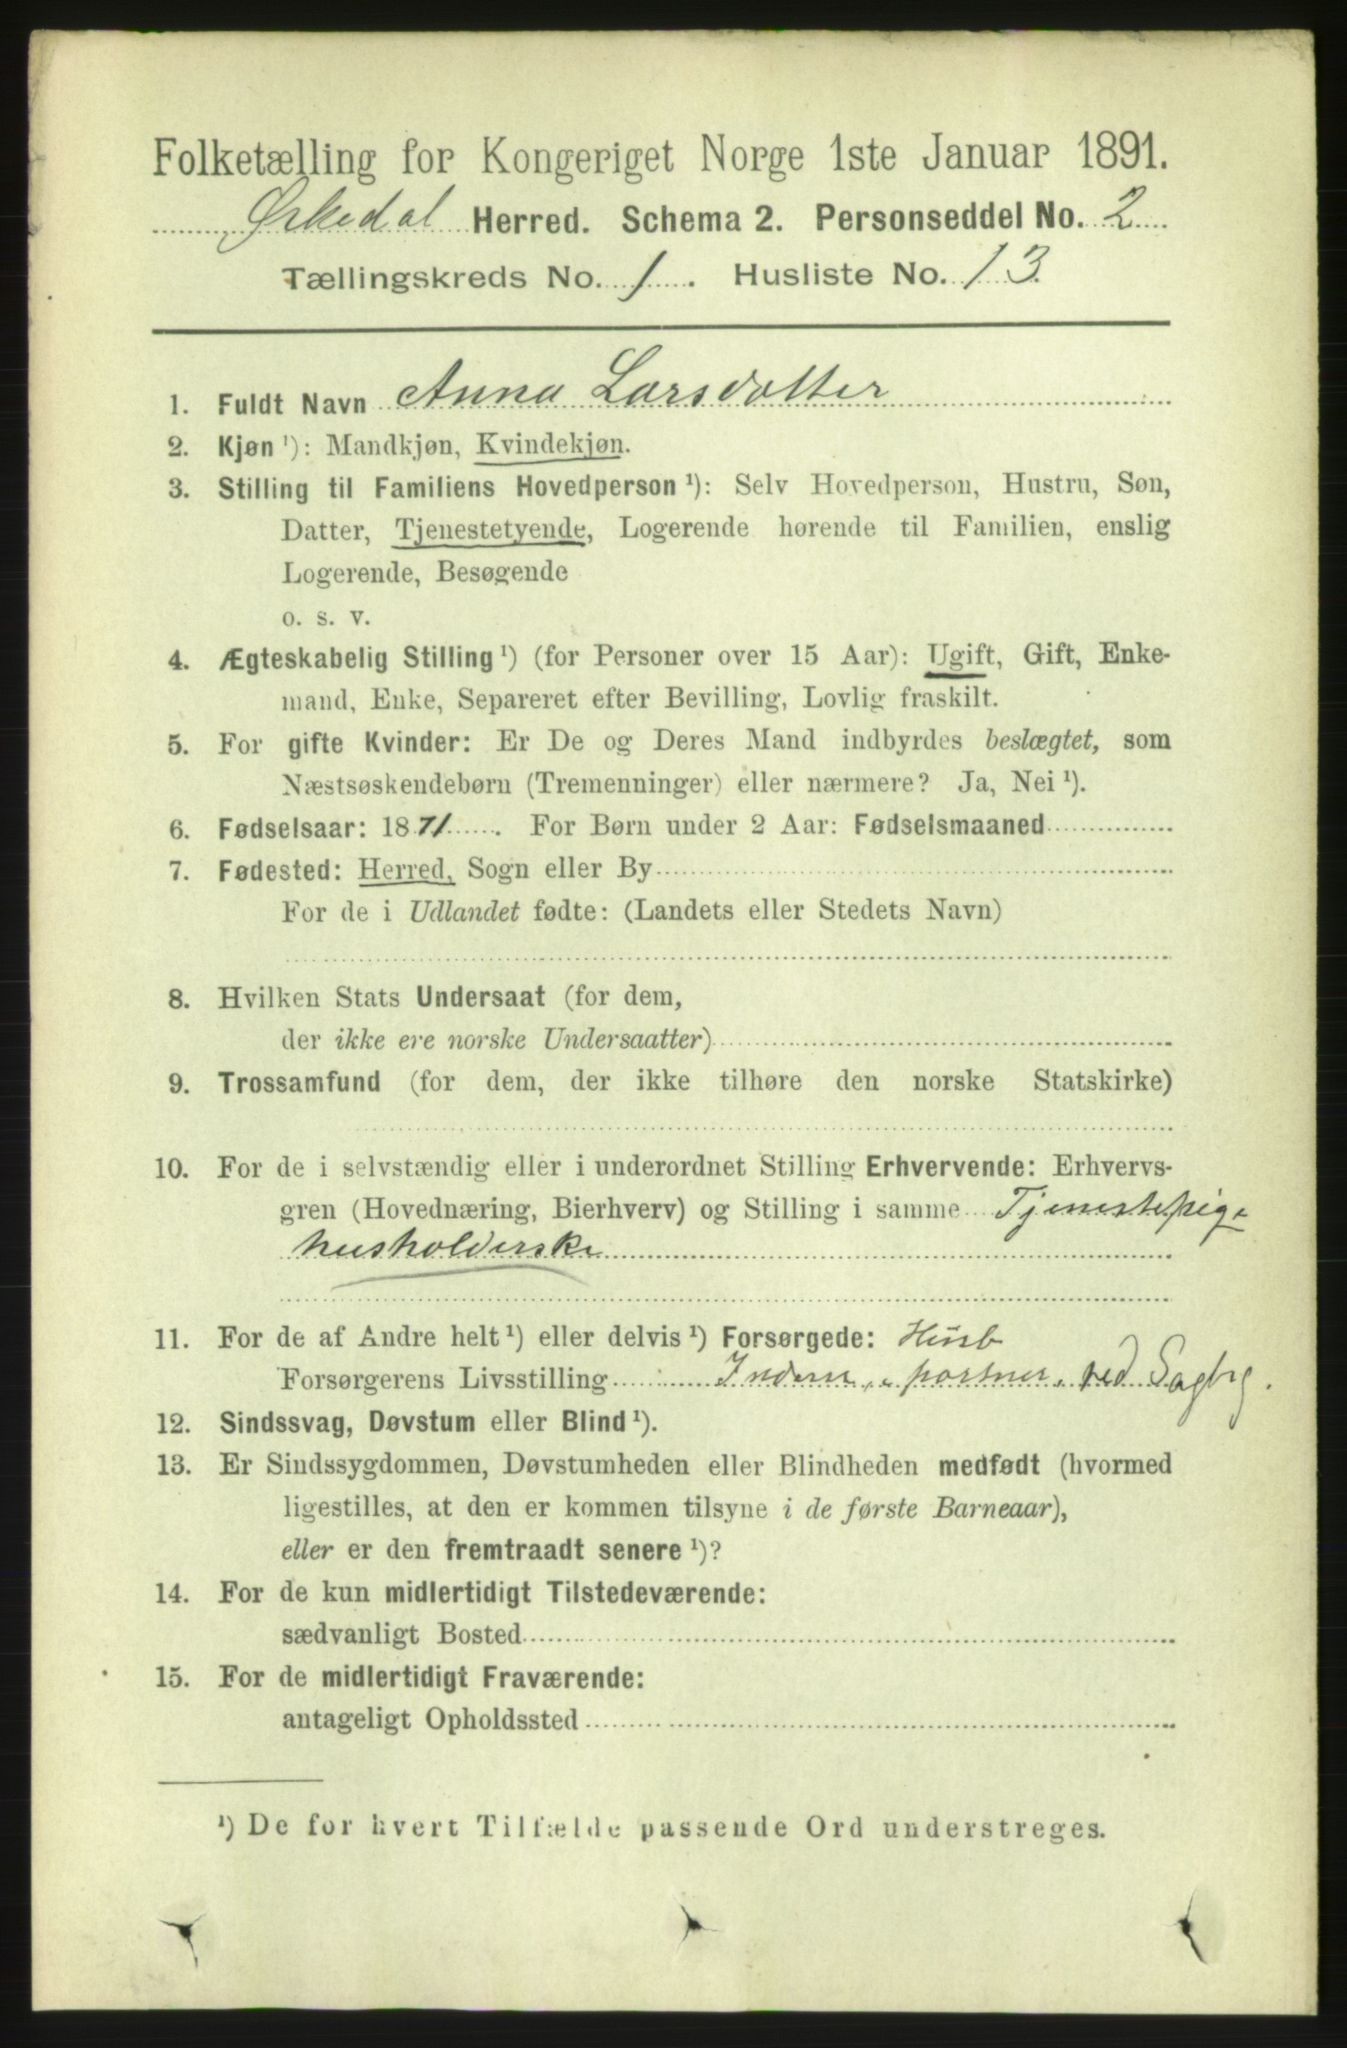 Folketælling for Kongeriget Norge 1ste Januar 1891.
Ørkedal Herred. Schema 2. Personseddel No. 2
Tællingskreds No. 1. Husliste No. 13.
1. Fuldt Navn Anna Larsdotter
2. Kjøn ¹): Mandkjøn, Kvindekjøn.
3. Stilling til Familiens Hovedperson ¹): Selv Hovedperson, Hustru, Søn,
Datter, Tjenestetyende, Logerende hørende til Familien, enslig
Logerende, Besøgende
o. s. v.
4. Ægteskabelig Stilling ¹) (for Personer over 15 Aar): Ugift, Gift, Enke-
mand, Enke, Separeret efter Bevilling, Lovlig fraskilt.
5. For gifte Kvinder: Er De og Deres Mand indbyrdes beslægtet, som
Næstsøskendebørn (Tremenninger) eller nærmere? Ja, Nei ¹).
6. Fødselsaar: 1871. For Børn under 2 Aar: Fødselsmaaned
7. Fødested: Herred, Sogn eller By
For de i Udlandet fødte: (Landets eller Stedets Navn)
8. Hvilken Stats Undersaat (for dem,
der ikke ere norske Undersaatter)
9. Trossamfund (for dem, der ikke tilhøre den norske Statskirke)
10. For de i selvstændig eller i underordnet Stilling Erhvervende: Erhvervs-
gren (Hovednæring, Bierhverv) og Stilling i samme Tjenestepige
husholderske
11. For de af Andre helt ¹) eller delvis ¹) Forsørgede: Husb
Forsørgerens Livsstilling ved Sagbrg.
12. Sindssvag, Døvstum eller Blind ¹).
13. Er Sindssygdommen, Døvstumheden eller Blindheden medfødt (hvormed
ligestilles, at den er kommen tilsyne i de første Barneaar),
eller er den fremtraadt senere ¹)?
14. For de kun midlertidigt Tilstedeværende:
sædvanligt Bosted
15. For de midlertidigt Fraværende:
antageligt Opholdssted
¹) De for hvert Tilfælde passende Ord understreges.